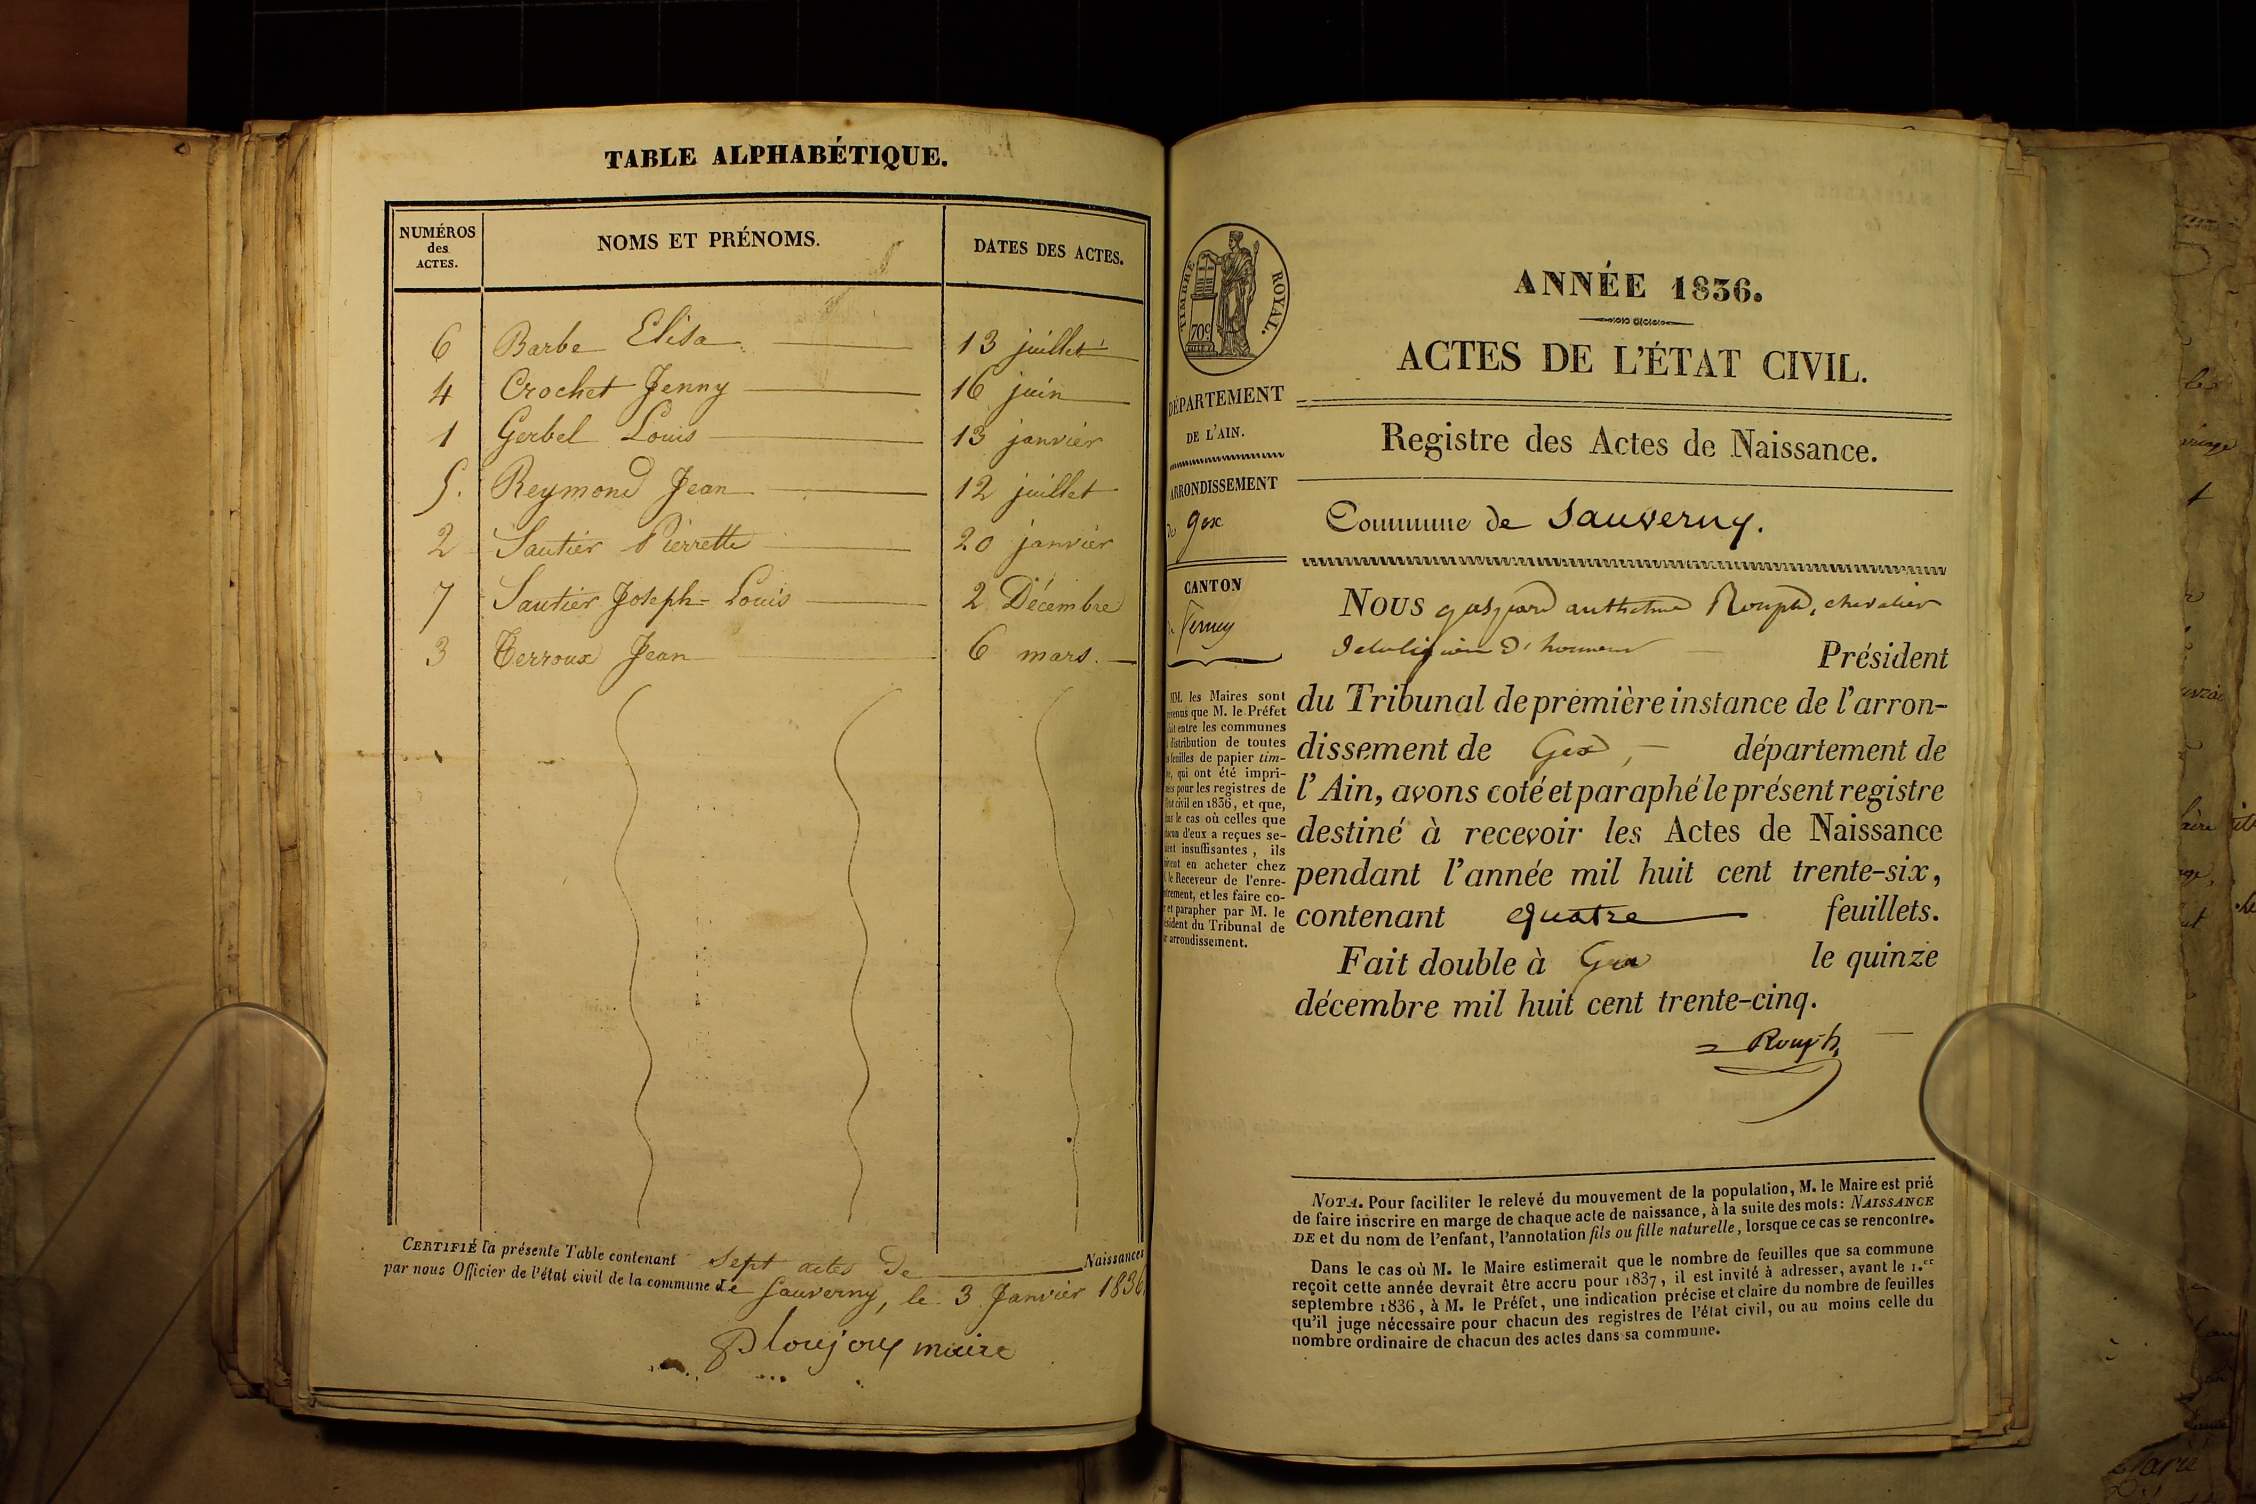 TABLE ALPHABÉTIQUE.
NUMÉROS des ACTES. NOMS ET PRÉNOMS. DATES DES ACTES.
6 Barbe Elisa 13 juillet
4 Crochet Jenny 16 juin
1 Gerbel Louis 13 janvier
5. Reymond Jean 12 juillet
2 Sautier Pierrette 20 janvier
7 Sautier Joseph-Louis 2 Décembre
3 Terroux Jean 6 mars.
CERTIFIÉ la présente Table contenant sept actes de Naissances
par nous Officier de l'état civil de la commune de Sauverny, le 3 Janvier 1836
Ploujoux maire
TIMBRE ROYAL.
70c
DÉPARTEMENT
DE L'AIN.
ARRONDISSEMENT
de Gex
CANTON
Ferney
MM. les Maires sont
que M. le Préfet
entre les communes
distribution de toutes
feuilles de papier tim-
qui ont été impri-
pour les registres de
civil en 1836, et que,
le cas où celles que
d'eux a reçues se-
insuffisantes, ils
en acheter chez
le Receveur de l'enre-
et les faire co-
et parapher par M. le
du Tribunal de
arrondissement.
ANNÉE 1836.
ACTES DE L'ÉTAT CIVIL.
Registre des Actes de Naissance.
Commune de Sauverny.
NOUS gaspard anthelme Rouph, chevalier
de la légion d'honneur Président
du Tribunal de première instance de l'arron-
dissement de Gex, département de
l'Ain, avons coté et paraphé le présent registre
destiné à recevoir les Actes de Naissance
pendant l'année mil huit cent trente-six,
contenant quatre feuillets.
Fait double à Gex le quinze
décembre mil huit cent trente-cinq.
Rouph
NOTA. Pour faciliter le relevé du mouvement de la population, M. le Maire est prié
de faire inscrire en marge de chaque acte de naissance, à la suite des mots: NAISSANCE
DE et du nom de l'enfant, l'annotation fils ou fille naturelle, lorsque ce cas se rencontre.
Dans le cas où M. le Maire estimerait que le nombre de feuilles que sa commune
reçoit cette année devrait être accru pour 1837, il est invité à adresser, avant le 1.er
septembre 1836, à M. le Préfet, une indication précise et claire du nombre de feuilles
qu'il juge nécessaire pour chacun des registres de l'état civil, ou au moins celle du
nombre ordinaire de chacun des actes dans sa commune.